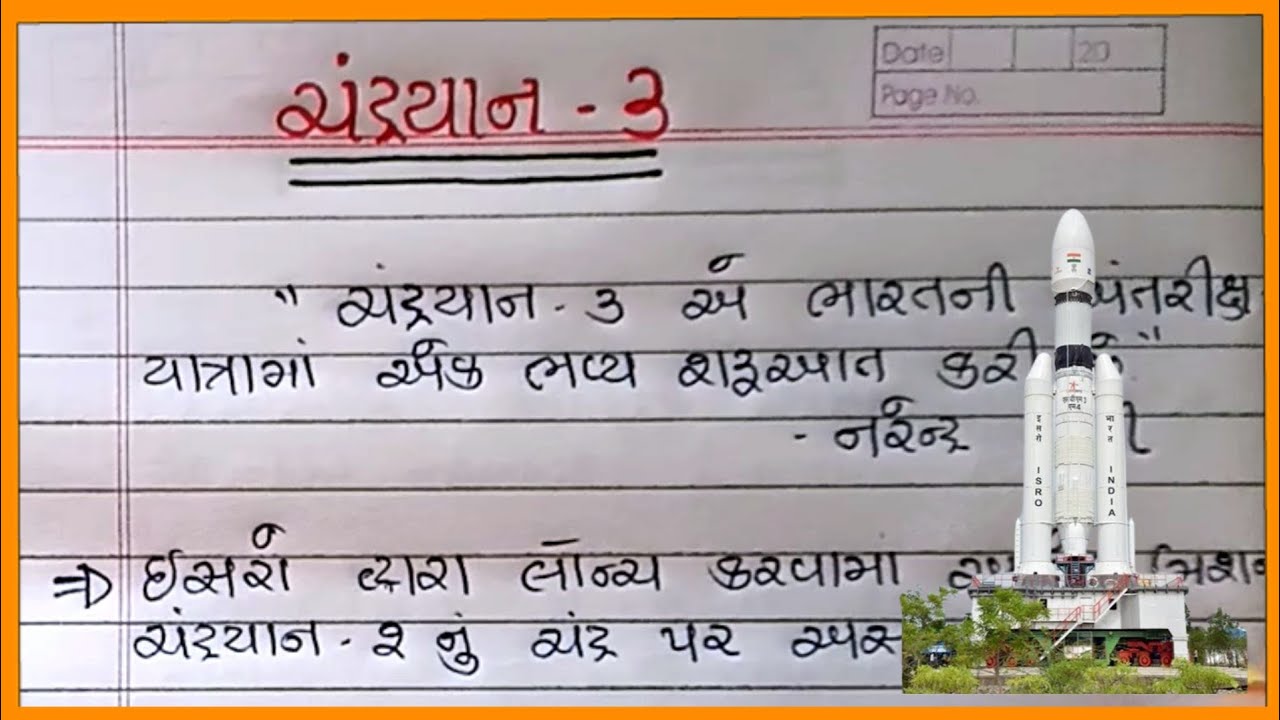 Date 20
Page No.
ચંદ્રયાન - 3
" ચંદ્રયાન - 3 એ ભારતની અંતરીક્ષ
યાત્રામાં એક ભવ્ય શરૂઆત કરી છે."
- નરેન્દ્ર
⇒ ઈસરો દ્વારા લોન્ચ કરવામાં મિશન
ચંદ્રયાન - 2 નું ચંદ્ર પર
इसरो ISRO
भारत INDIA